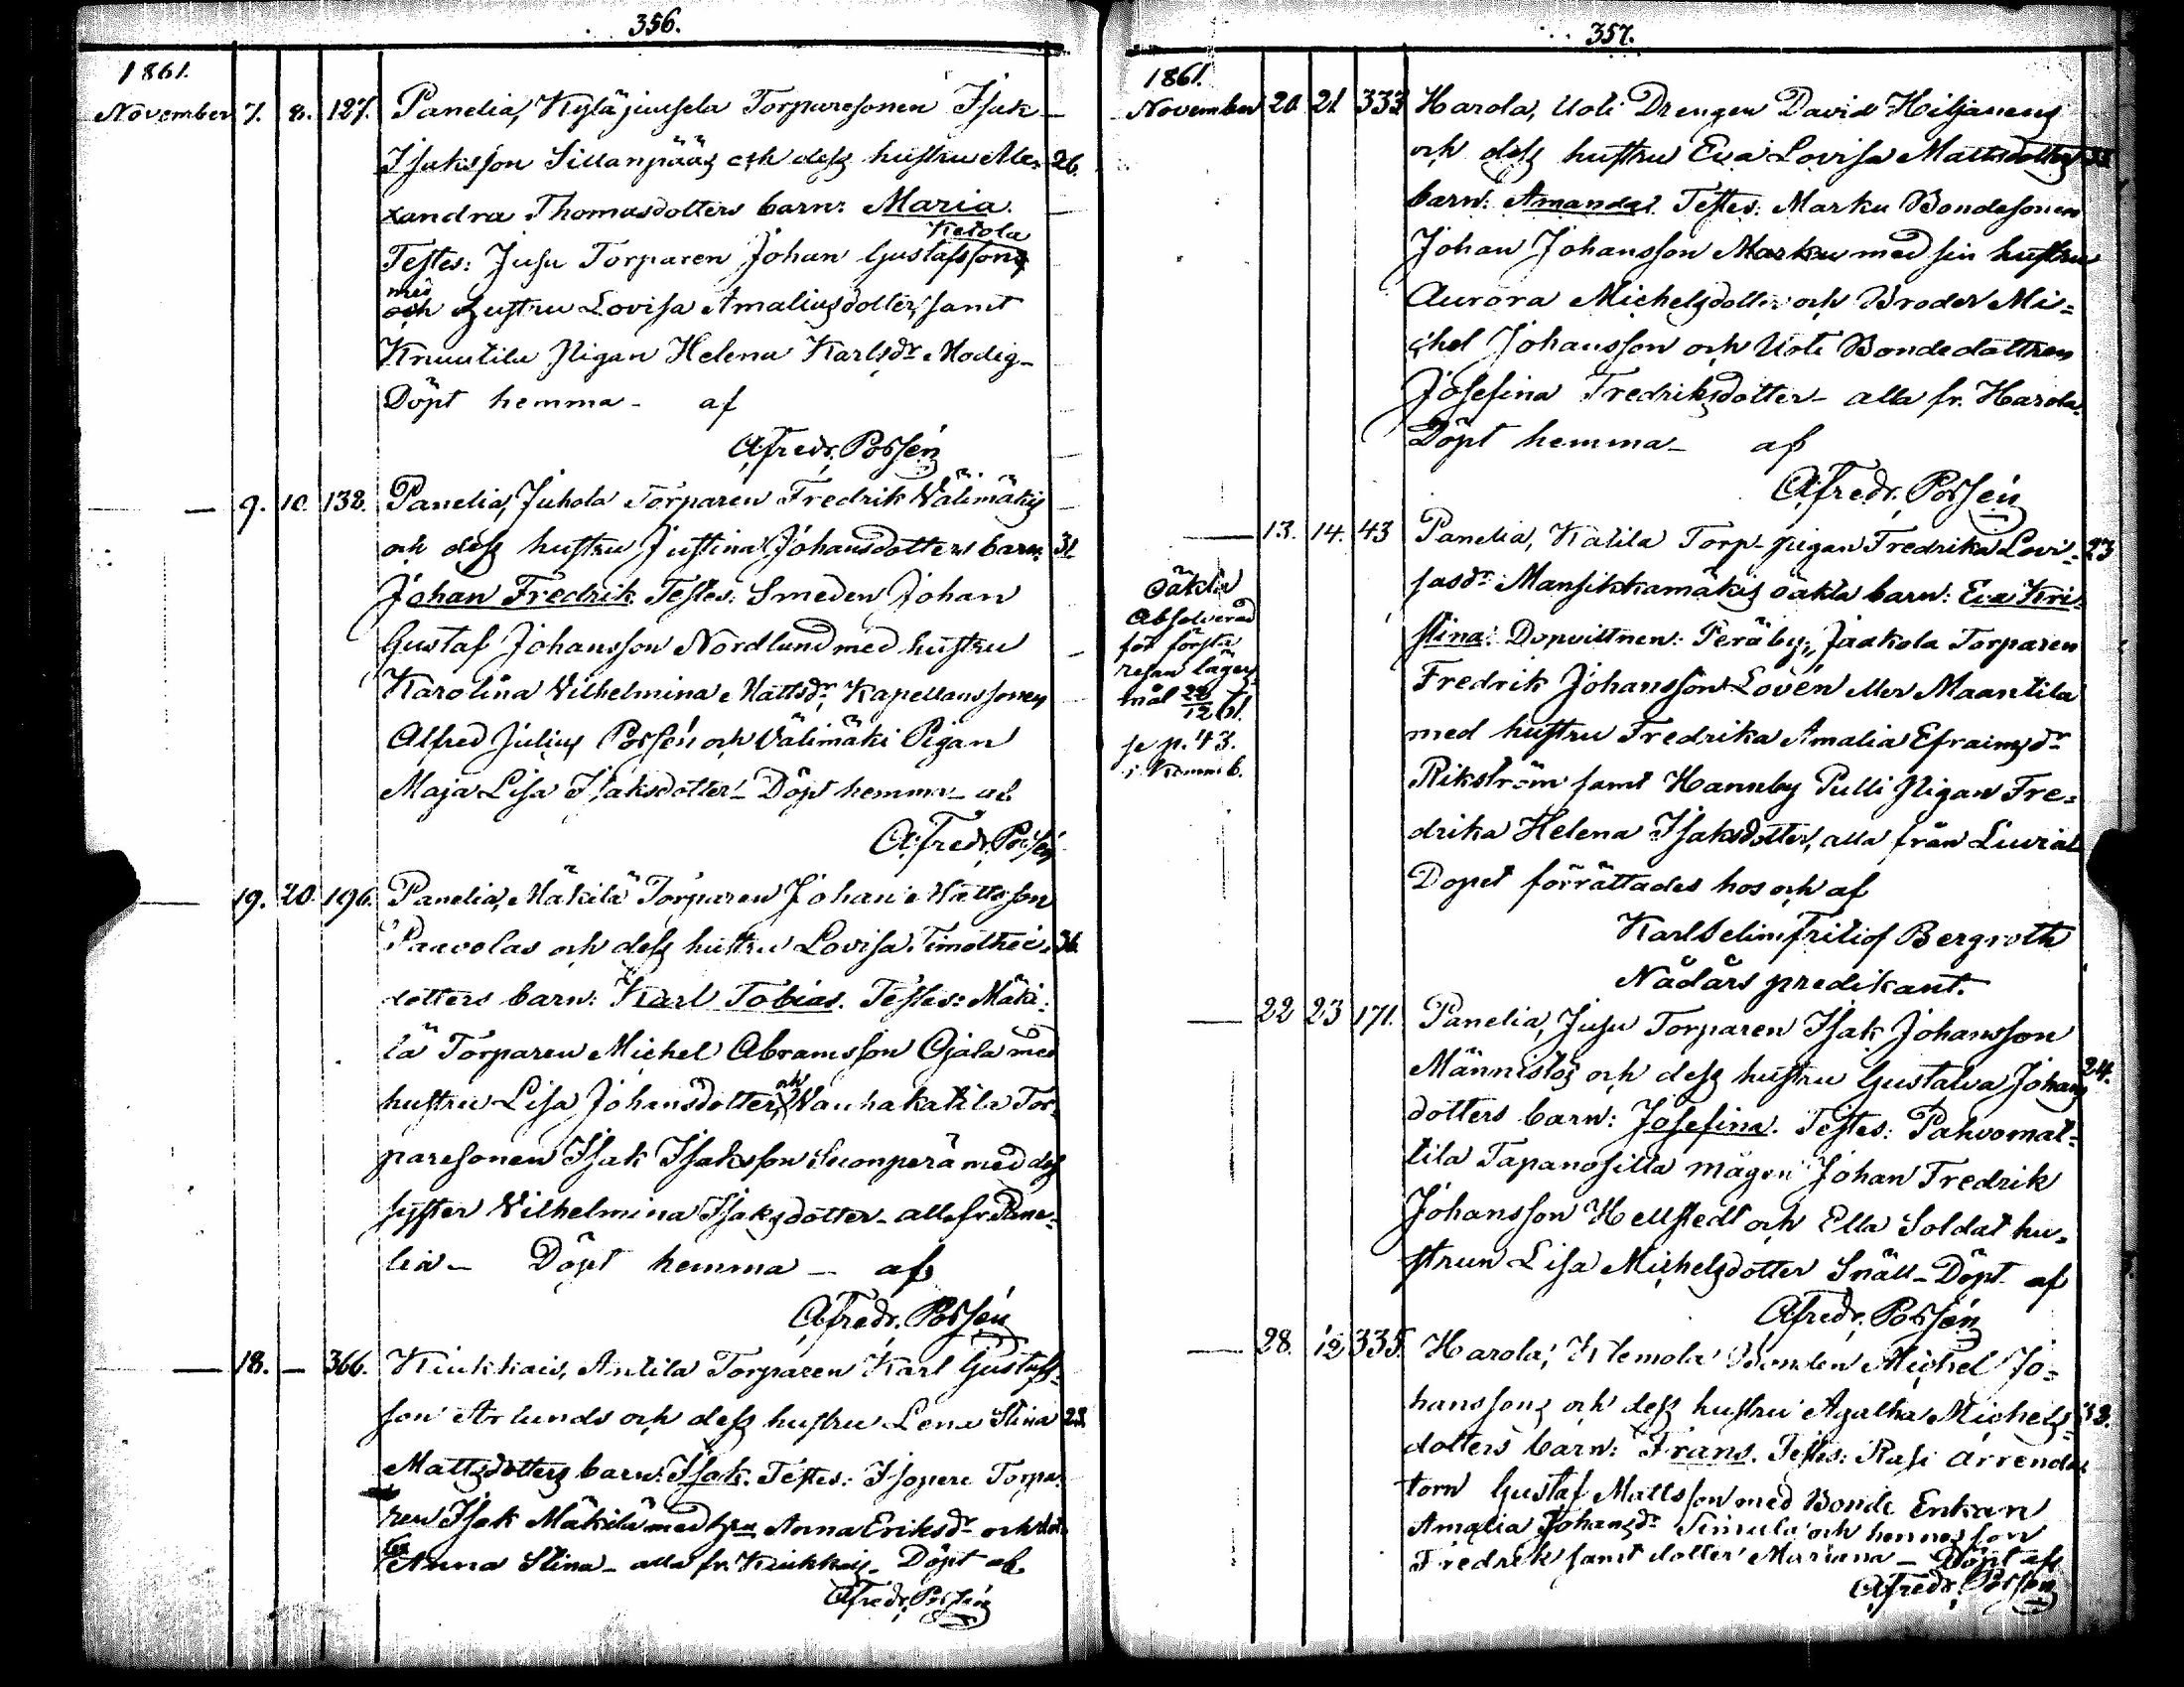 356.
1861.
November 7. 8. 127. Panelia, Kyläjuusela Torparesonen Isak
Isaksson Sillanpääs och dess hustru Ale- 26.
xandra Thomasdotters barn: Maria.
Ketola
Testes: Jusu Torparen Johan Gustafsson
med
och Hustru Lovisa Amaliusdotter, samt
Knuutila Pigan Helena Karlsdr Modig-
Döpt hemma - af
A. Fredr. Possén
— 9. 10. 138. Panelia, Juhola Torparen Fredrik Välimäkis
och dess hustru Justina Johansdotters barn: 31
Johan Fredrik. Testes: Smeden Johan
Gustaf Johansson Nordlund med hustru
Karolina Vilhelmina Mattsdr, Kapellanssonen
Alfred Julius Possén och Välimäki Pigan
Maja Lisa Isaksdotter - Döpt hemma - af
A. Fredr. Possén
— 19. 20. 196. Panelia, Mäkilä Torparen Johan Mattsson
Paavolas och dess hustru Lovisa Timothei- 36.
dotters barn: Karl Tobias. Testes: Mäki-
lä Torparen Michel Abramsson Ojala med
och
hustru Lisa Johansdotter, Vanhakatila Tor-
paresonen Isak Isaksson Suonperä med dess
syster Vilhelmina Isaksdotter - alla fr. Pane-
lia - Döpt hemma - af
A. Fredr. Possén
— 18. — 366. Kiukkais, Antila Torparen Karl Gustafs-
son Arlunds och dess hustru Lena Stina 28.
Mattsdotters barn: Isak. Testes: Isopere Torpa-
ren Isak Mäkilä med hru Anna Eriksdr och dot-
ter
Anna Stina - alla fr. Kiukkais - Döpt af
A. Fredr. Possén
357.
1861.
November 20. 21. 333 Harola, Uoti Drengen David Hiljanens
och dess hustru Eva Lovisa Mattsdotters
barn: Amanda. Testes: Marku Bondesonen
Johan Johansson Marku med sin hustru
Aurora Michelsdotter och Broder Mi-
chel Johansson och Uoti Bondedottren
Josefina Fredriksdotter - alla fr. Harola.
Döpt hemma - af
A. Fredr. Possén
— 13. 14. 43 Panelia, Katila Torp-pigan Fredrika Lovi- 23
sasdr Mansikkamäkis oäkta barn: Eva Kri-
stina. Dopvittnen: Peräby, Jaakola Torparen
Fredrik Johansson Lovén eller Maantila
med hustru Fredrika Amalia Efraimsdr
Rikström samt Hannby Pulli Pigan Fre-
drika Helena Isaksdotter, alla från Luvia
Dopet förrättades hos och af
Karl Selim Fritiof Bergroth
Nådårs predikant.
oäkta
Absolverad
för första
resan läger
mål 28/12 61.
se p. 43.
i Komm b.
— 22 23 171. Panelia, Jusu Torparen Isak Johansson
Männistös och dess hustru Gustava Johans 24.
dotters barn: Josefina. Testes: Pahvomat-
tila Tapanosilta mågen Johan Fredrik
Johansson Hellstedt och Ella Soldat hu-
strun Lisa Michelsdotter Snäll - Döpt af
A. Fredr. Possén
— 28. 335. Harola, Bonden Michel Jo-
hanssons och dess hustru Agatha Michels- 38.
dotters barn: Frans. Testes: Rasi Arrenda
torn Gustaf Mattsson med Bonde Enkan
Amalia Johansdr Simula och hennes son
Fredrik samt dotter Mariana - Döpt af
A. Fredr. Possén